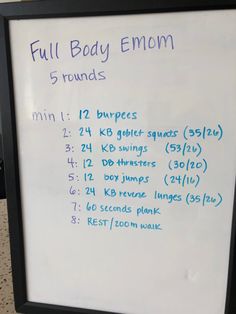 Full Body EMOM
5 rounds
min 1: 12 burpees
2: 24 KB goblet squats (35/26)
3: 24 KB swings (53/26)
4: 12 DB thrusters (30/20)
5: 12 box jumps (24/16)
6: 24 KB reverse lunges (35/26)
7: 60 seconds plank
8: REST/200m walk